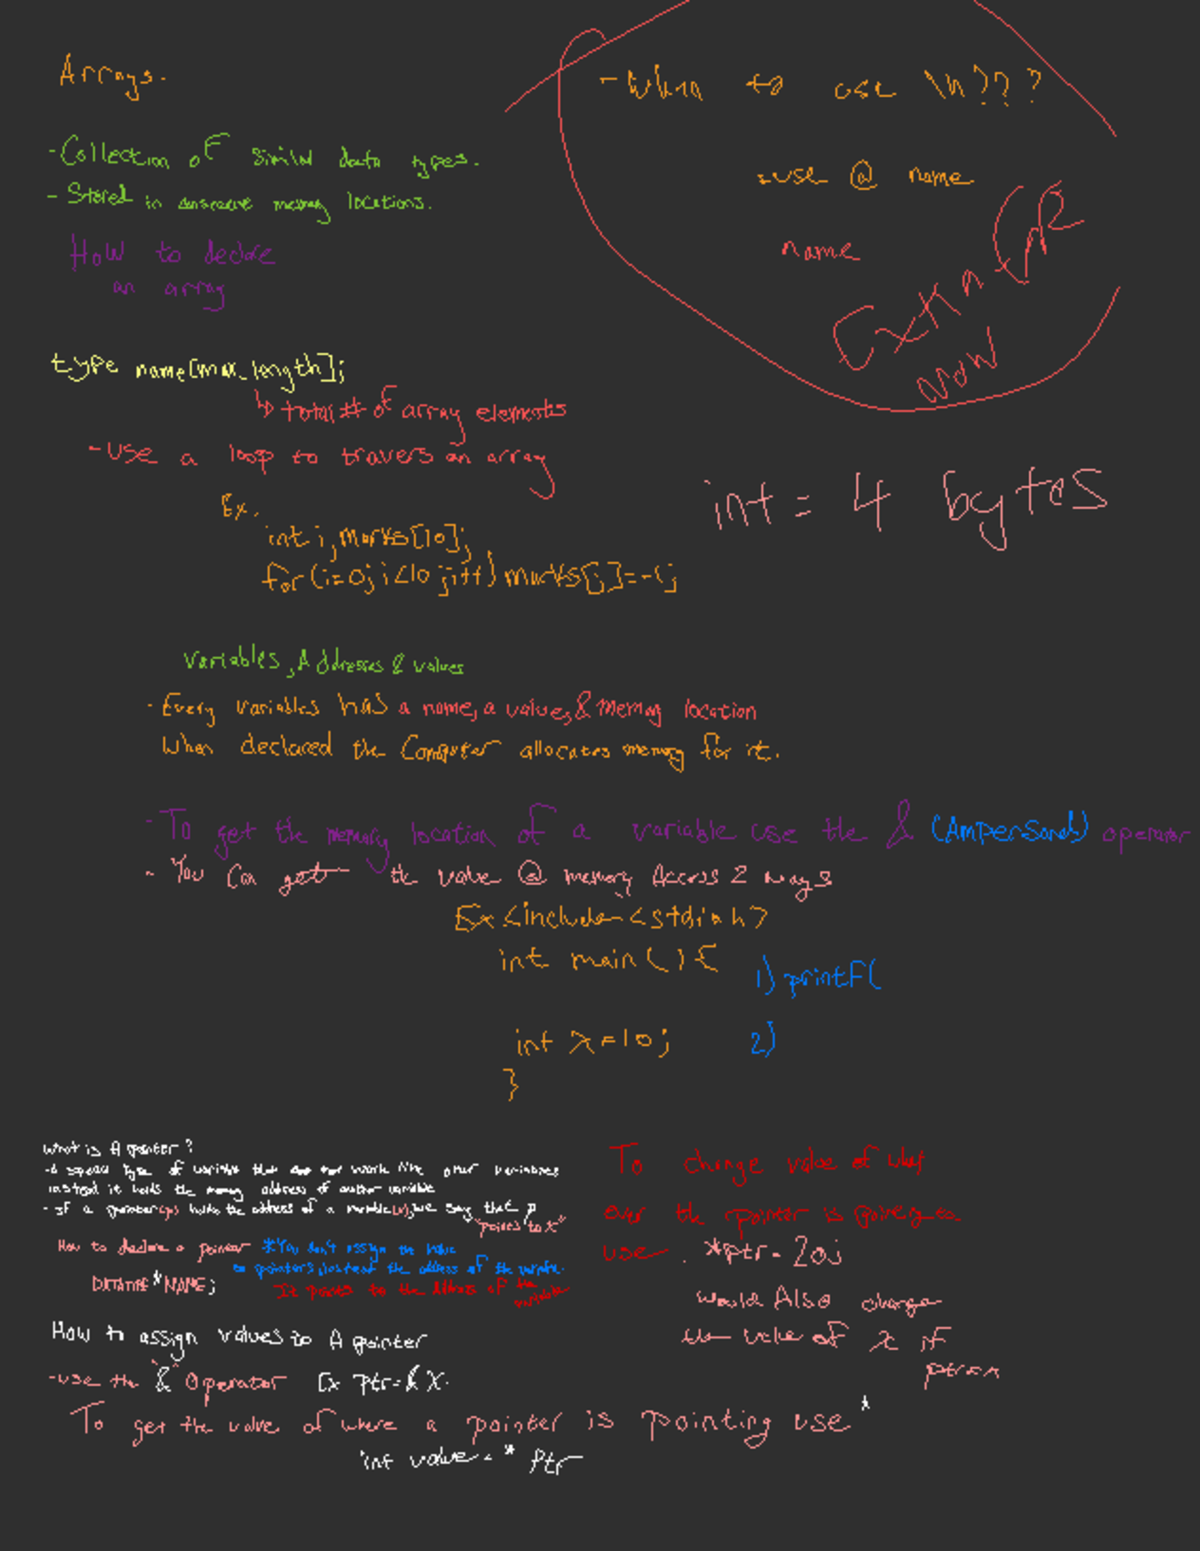 Arrays.
- Collection of similar data types.
- Stored in memory locations.
How to declare
an array
type name[max_length];
↳ total # of array elements
- use a loop to travers an array
Ex.
int i, marks[10];
for (i=0; i<10; i++) marks[i]=-1;
- When to use \n???
- use @ name
name
Extra
now
int = 4 bytes
Variables, Addresses & values
- Every variables has a name, a value, & memory location
When declared the Computer allocates memory for it.
- To get the memory location of a variable use the & (Ampersand) operator
- You Can get the value @ memory Access 2 ways
Ex <include <stdio.h>
int main() {
1) printf(
int x=10;
2)
}
What is A pointer?
- A special type of variable that does not work like other variables
instead it holds the memory address of another variable
- If a pointer(p) holds the address of a variable(x), we say that p
"points to x"
How to declare a pointer
DATATYPE *NAME;
*You don't assign the value
to pointers, instead the address of the variable.
It points to the Address of the
variable
How to assign values to A pointer
- use the "&" Operator Ex ptr=&x.
To get the value of where a pointer is pointing use *
int value = * ptr
To change value of what
ever the pointer is pointing to
use . *ptr = 20;
would Also change
the value of x if